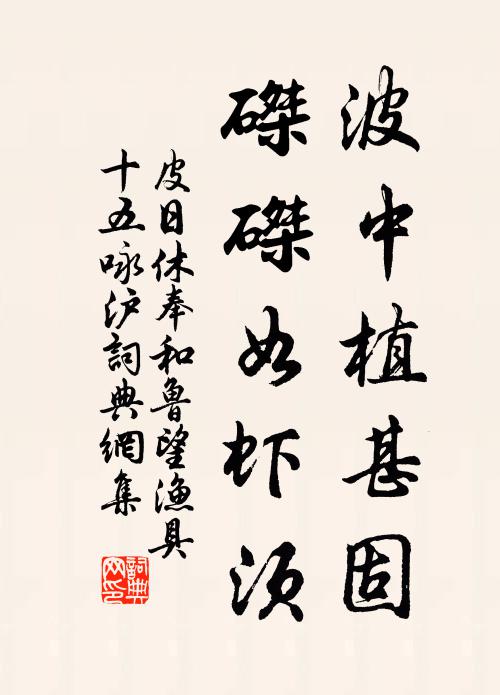 波中植甚固
磔磔如虾须
皮日休奉和鲁望渔具
十五咏沪词典网集
词典
网印